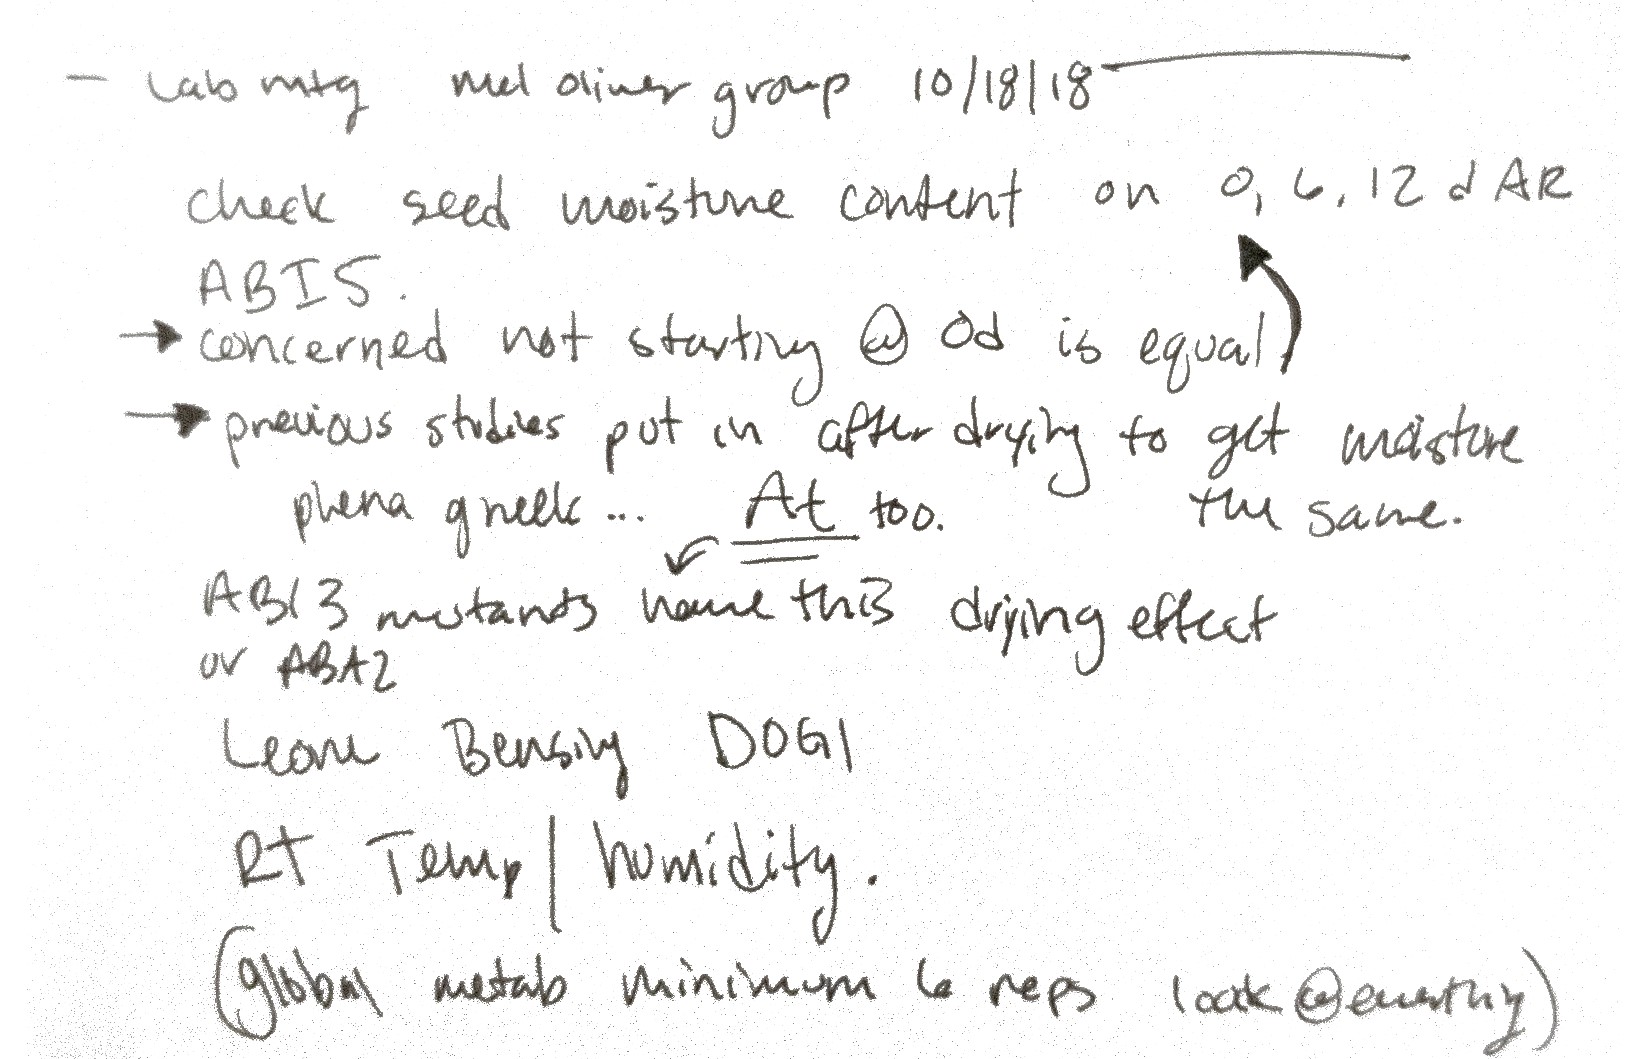 - Lab mtg Mel Oliver group 10/18/18
check seed moisture content on 0, 6, 12 d AR
ABI5.
→ concerned not starting @ 0d is equal.
→ previous studies put in after drying to get moisture
phena greek... At too. the same.
ABI3 mutants have this drying effect
or ABA2
Leone Bensing DOG1
RT Temp/humidity.
(global metab minimum 6 reps look @ everything)